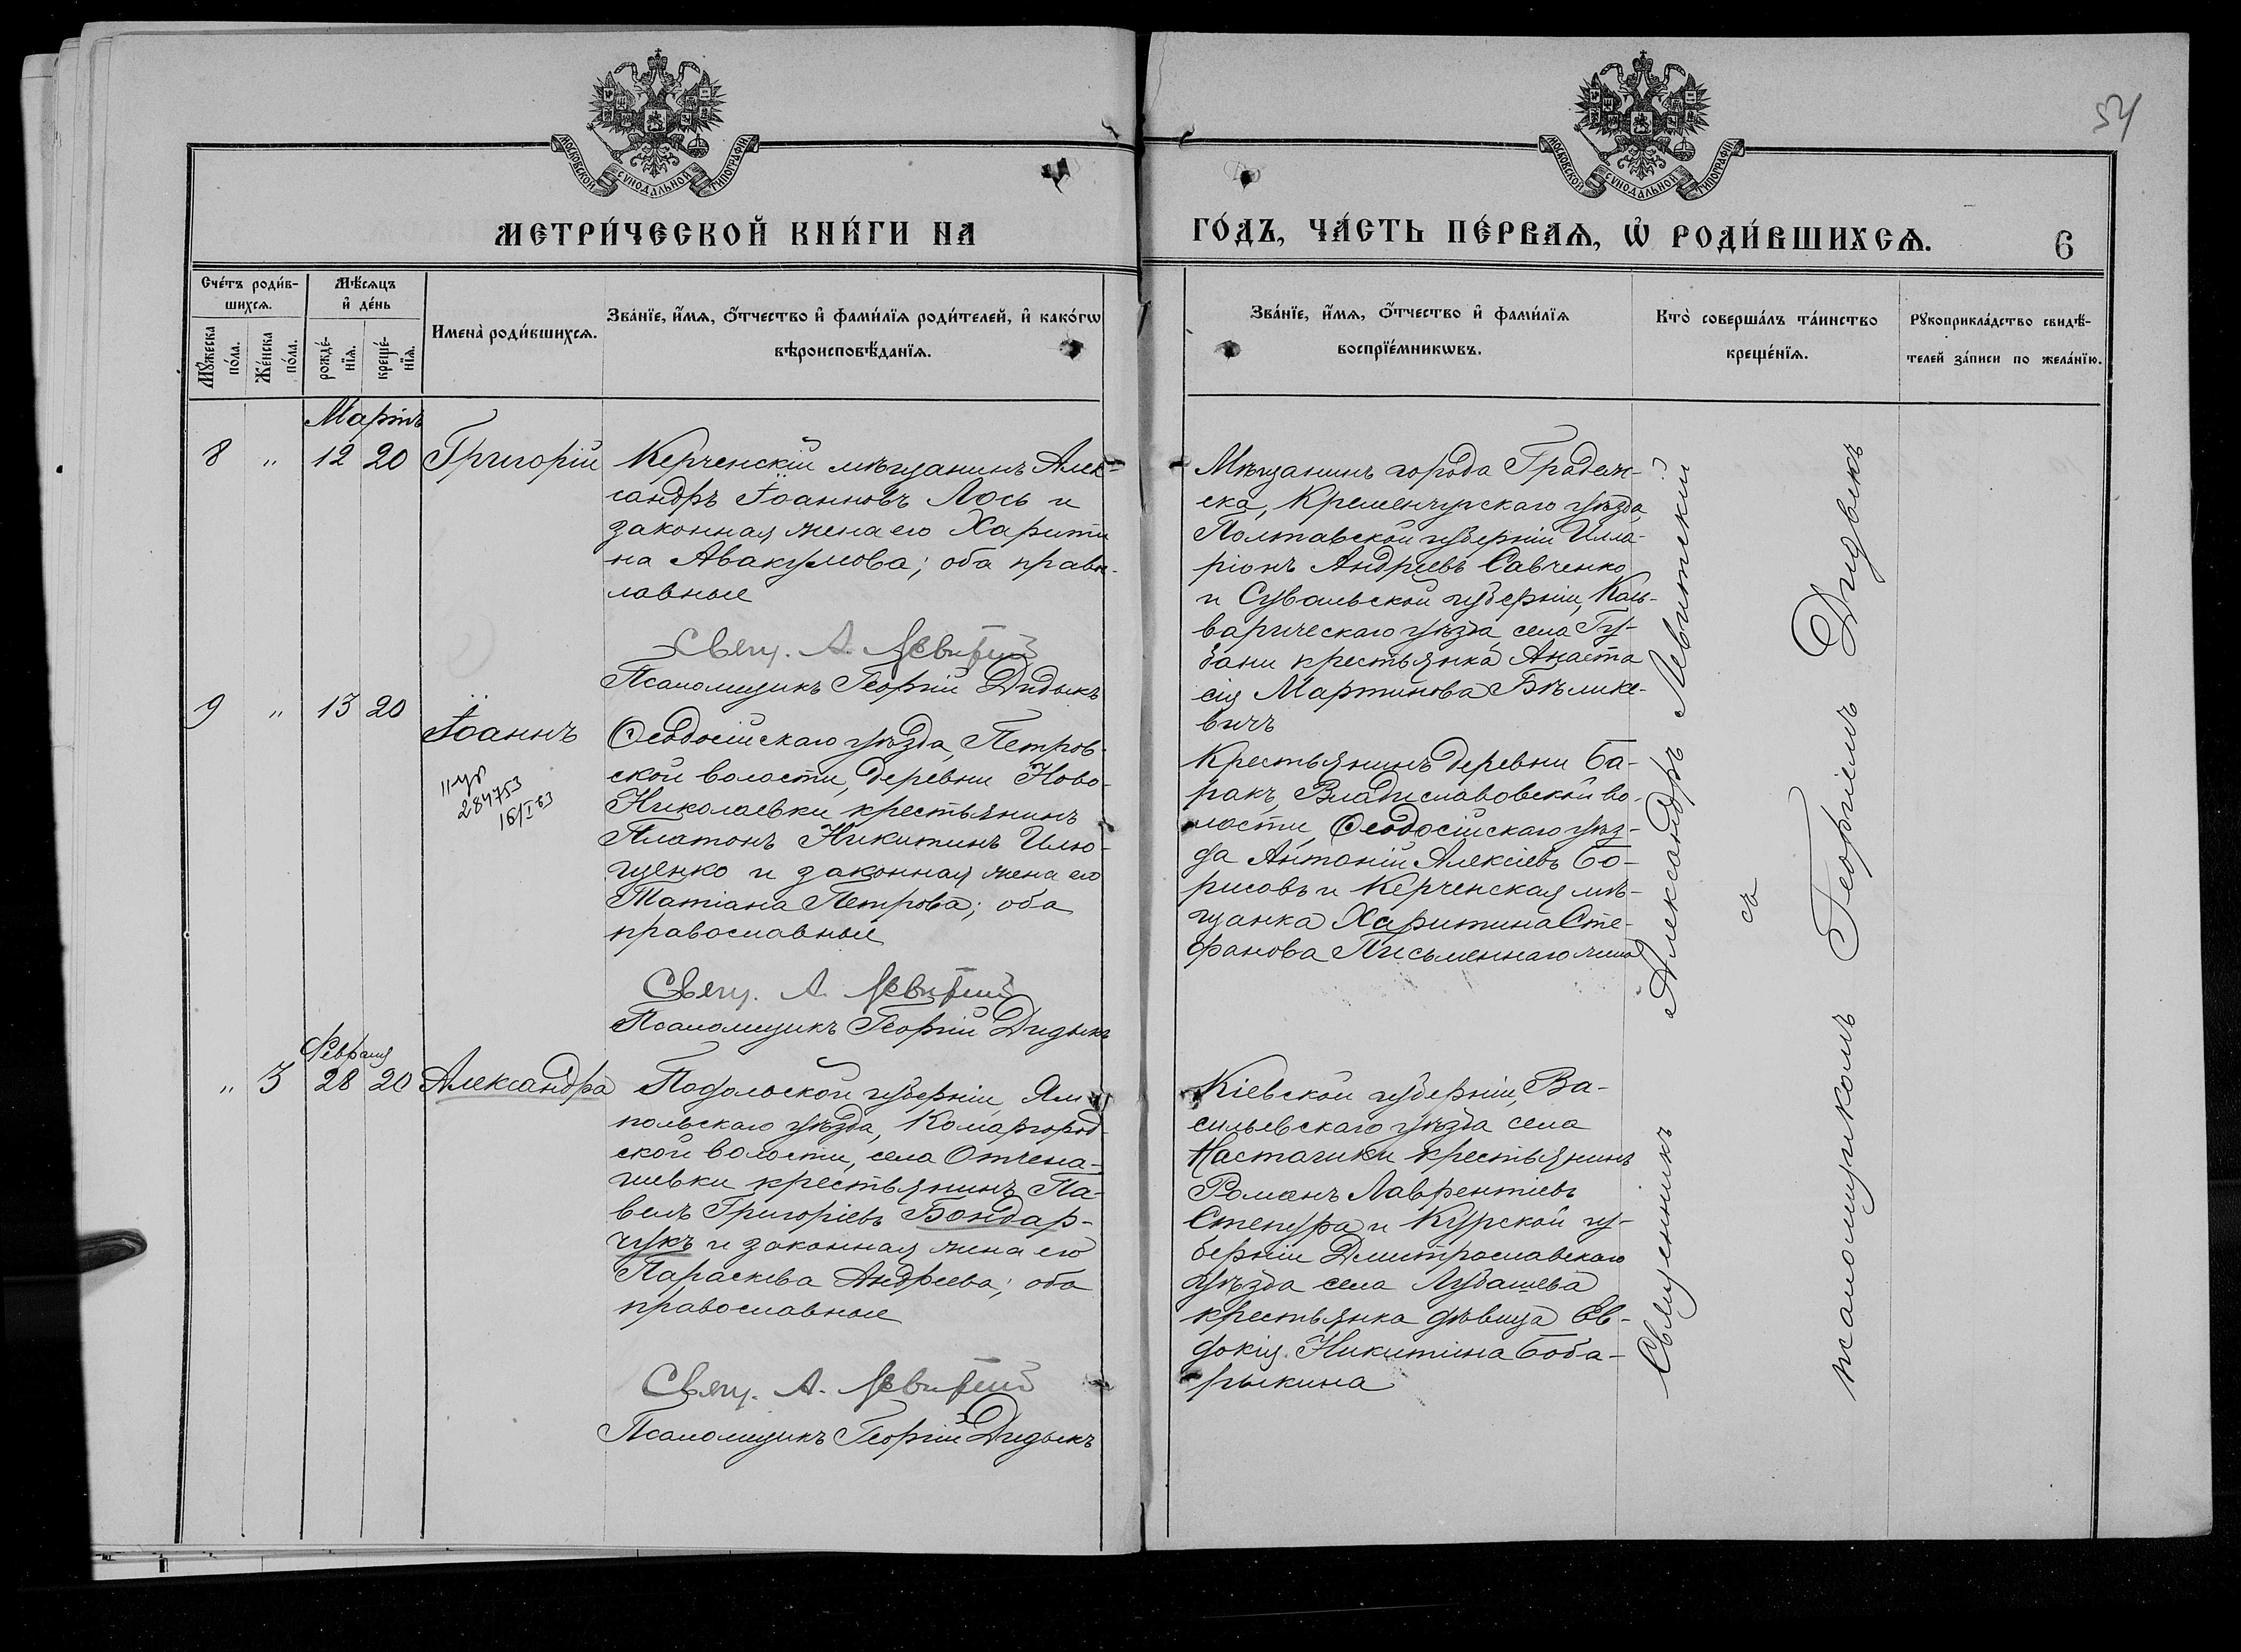 54
МОСКОВСКОЙ СѴНОДАЛЬНОЙ ТИПОГРАФІИ
МОСКОВСКОЙ СѴНОДАЛЬНОЙ ТИПОГРАФІИ
МЕТРИ́ЧЕСКОЙ КНИ́ГИ НА
ГО́ДЪ, ЧА́СТЬ ПЕ́РВАѦ, Ѡ҆ РОДИ́ВШИХСѦ.
6
Сче́тъ роди́в-
шихсѧ.
Мꙋ́жеска
по́ла.
Же́нска
по́ла.
Мѣ́сѧцъ
и҆ де́нь
рожде́-
нїѧ.
креще́-
нїѧ.
Имена̀ роди́вшихсѧ.
Зва́нїе, и҆́мѧ, ѻ҆́тчество и҆ фами́лїѧ роди́телей, и҆ како́гѡ
вѣроисповѣ́данїѧ.
Зва́нїе, и҆́мѧ, ѻ҆́тчество и҆ фами́лїѧ
воспрїе́мникѡвъ.
Кто̀ соверша́лъ та́инство
креще́нїѧ.
Рꙋкоприкла́дство свидѣ́-
телей за́писи по жела́нїю.
Мартъ
8 " 12 20 Григорій
Керченскій мѣщанинъ Алек-
сандръ Іоанновъ Лось и
законная жена его Харити
на Авакумова; оба право-
лавные
Свящ. А. Левитскій
Псаломщикъ Георгій Дидыкъ
Мѣщанинъ города Градиж-
ска, Кременчугскаго уѣзда,
Полтавской губерніи Илла-
ріонъ Андреевъ Савченко
и Сувальской губерніи, Каль-
варическаго уѣзда села Гу-
бани крестьянка Анаста
сія Мартинова Бѣлике-
вичъ
9 " 13 20
Іоаннъ
11 уг
284753
16/I 63
Ѳеодосійскаго уѣзда, Петров-
ской волости, деревни Ново-
Николаевки крестьянинъ
Платонъ Никитинъ Илю-
щенко и законная жена его
Татіана Петрова; оба
православные
Свящ. А. Левитскій
Псаломщикъ Георгій Дидыкъ
Крестьянинъ деревни Ба-
ракъ, Владиславовской во-
лости, Ѳеодосійскаго уѣз-
да Антоній Алексіевъ Бо-
рисовъ и Керченская мѣ-
щанка Харитина Сте-
фанова Письменнаго жена
Февраля
" 3 28 20 Александра
Подольской губерніи, Ям
польскаго уѣзда, Комаргород-
ской волости, села Отчена-
шевки крестьянинъ Па-
велъ Григоріевъ Бондар-
чукъ и законная жена его
Параскева Андреева; оба
православные
Свящ. А. Левитскій
Псаломщикъ Георгій Дидыкъ
Кіевской губерніи, Ва-
сильевскаго уѣзда села
Настагики крестьянинъ
Романъ Лаврентіевъ
Степура и Курской гу-
берніи Дмитрославскаго
уѣзда села Лубашева
крестьянка дѣвица Ев-
докія Никитина Боба-
рыкина
Священникъ Александръ Левитскій
съ
псаломщикомъ Георгіемъ Дидыкъ